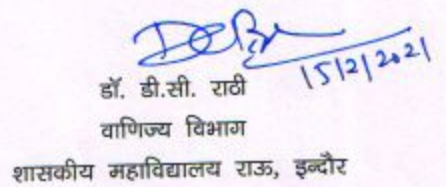 15/2/2021
डॉ. डी.सी. राठी
वाणिज्य विभाग
शासकीय महाविद्यालय राऊ, इन्दौर